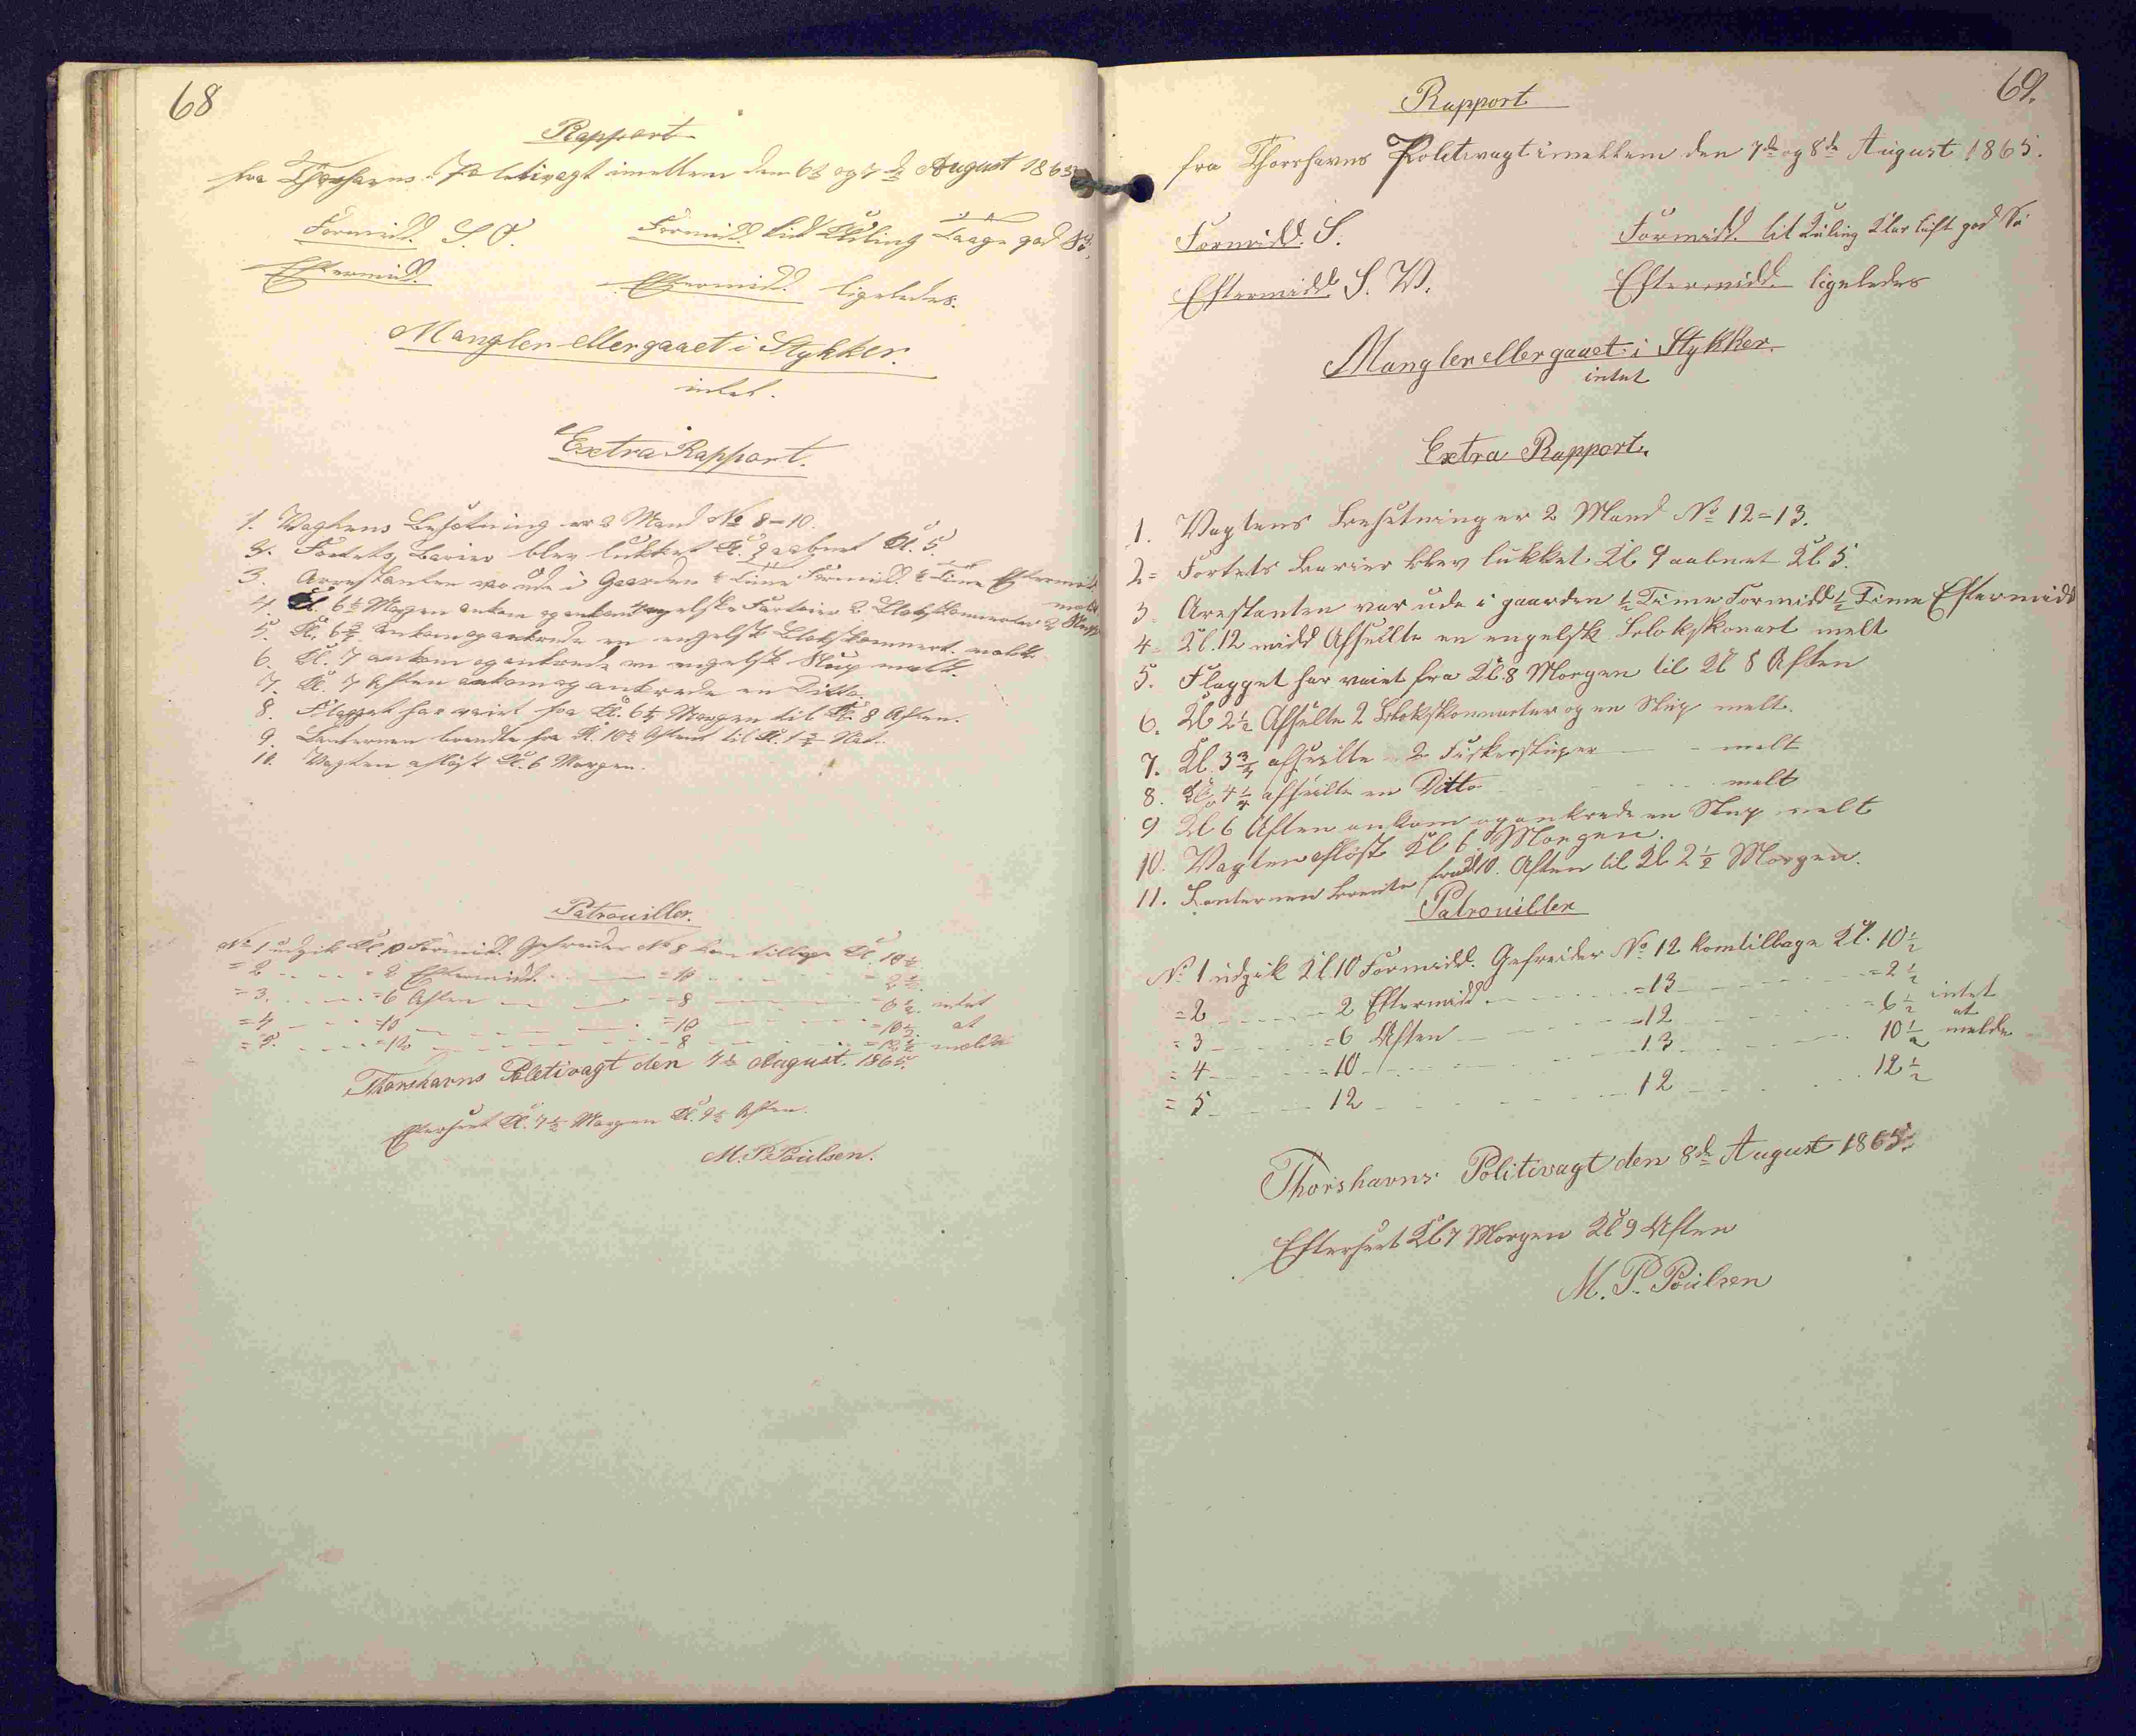 68
Rapport
fra Thorshavns Politivagt imellem den 6te og 7de August 1865
Formidd. S. O. Formidd. lidt Kuling Taage god Sø.
Eftermidd. Eftermidd. ligeledes.
Mangler eller gaaet i Stykker.
intet.
Extra Rapport.
1. Vagtens Besætning er 2 Mand No 8-10.
2. Fortets Barier blev lukket Kl. 9 aabnet Kl. 5.
3. Arrestanten var ude i Gaarden ½ Time Formidd. ½ Time Eftermidd.
4. Kl. 6½ Morgen ankom og ankrede engelske Fartøier 2 Slupper
meldt
5. Kl. 6¾ ankom og ankrede en engelsk Blokskonnert. meldt.
6. Kl. 7 ankom og ankrede en engelsk Slup meldt.
7. Kl. 7 Aften ankom og ankrede en Ditto.
8. Flagget har vaiet fra Kl. 6½ Morgen til Kl. 8 Aften.
9. Lanternen brendte fra Kl. 10½ Aften til Kl. 1¾ Nat.
11. Vagten afløst Kl. 6 Morgen.
Patrouiller.
No 1 udgik Kl. 10 Formidd. Gefreider No 8 kom tillage Kl. 10½.
= 2 = 2 Eftermidd. = 10 = 2½.
= 3. = 6 Aften = 8 = 6½. intet
= 4 = 10 = 10 = 10½. at
= 5. = 12 = 8 = 12½ melde
Thorshavns Poletivagt den 7de August. 1865.
Efterseet Kl. 7½ Morgen Kl. 9½ Aften.
M. P. Poulsen.
69.
Rapport
fra Thorshavns Politivagt imellem den 7de og 8de August 1865.
Formidd. S. Formidd. lit Kuling Klar luft god Sø
Eftermidd. S. W. Eftermidd. ligeledes
Mangler eller gaaet i Stykker.
intet
Extra Rapport.
1. Vagtens Besetning er 2 Mand No 12=13.
2= Fortets Barier blev lukket Kl 9 aabnet Kl 5.
3= Arestanten var ude i gaarden ½ Time Formidd ½ Time Eftermidd
4= Kl. 12 midd Afseilte en engelsk Blokskonart melt
5. Flagget har vaiet fra Kl. 8 Morgen til Kl 8 Aften
6. Kl 2½ Afseilte 2 Blokskonnerter og en Slup melt.
7. Kl. 3¾ afseilte 2 Fiskerslupper melt
8. Kl. 4¼ afseilte en Ditto melt
9 Kl 6 Aften ankom og ankrede en Slup melt
10. Vagten afløst Kl 6 Morgen.
11. Lanternen brente fra Kl 10. Aften til Kl 2½ Morgen.
Patrouiller
No 1 udgik Kl. 10 Formidd. Gefreider No 12 kom tilbage Kl. 10½
= 2 2 Eftermidd = 13 = 2½
= 3 = 6 Aften = 12 = 6½ intet
at
= 4 = 10 13 10½ melde
= 5 12 12 12½
Thorshavns Politivagt den 8de August 1865.
Efterseet Kl 7 Morgen Kl 9 Aften
M. P. Poulsen